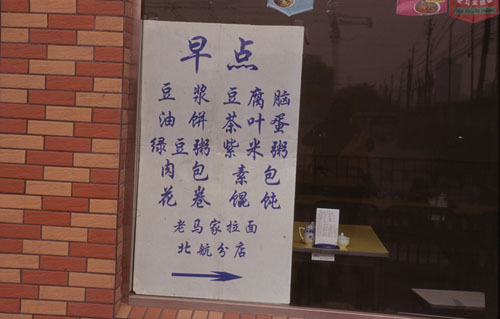 早点
豆浆 豆腐脑
油饼 茶叶蛋
绿豆粥 紫米粥
肉包 素包
花卷 馄饨
老马家拉面
北航分店